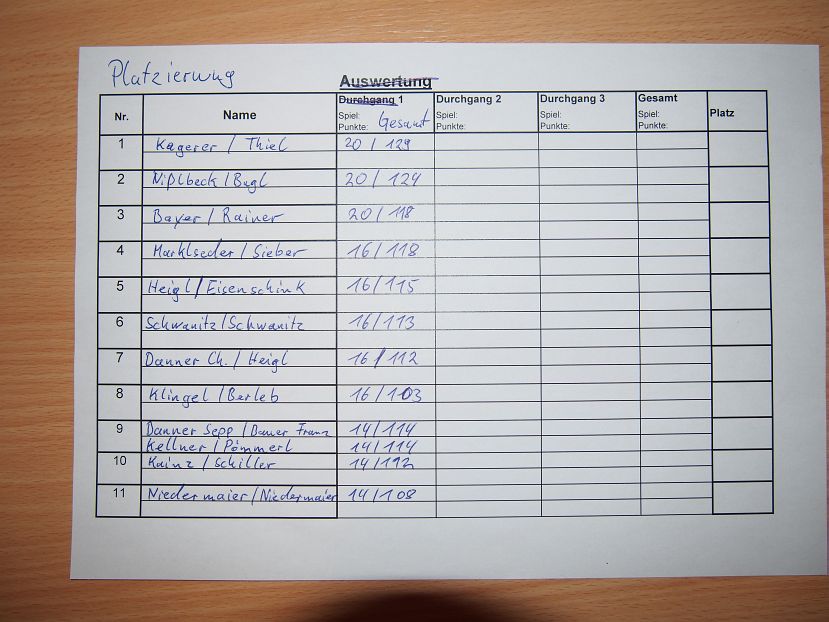 Platzierung
Auswertung
Nr. Name Durchgang 1 Durchgang 2 Durchgang 3 Gesamt Platz
Spiel: Gesamt Spiel: Spiel: Spiel:
Punkte: Punkte: Punkte: Punkte:
1 Kagerer / Thiel 20 / 129
2 Nißlbeck / Bugl 20 / 124
3 Bayer / Rainer 20 / 118
4 Marklseder / Sieber 16 / 118
5 Heigl / Eisenschink 16 / 115
6 Schwanitz / Schwanitz 16 / 113
7 Danner Ch. / Heigl 16 / 112
8 Klingel / Berleb 16 / 103
9 Danner Sepp / Bauer Franz 14 / 114
Kellner / Pömmerl 14 / 114
10 Kainz / Schiller 14 / 112
11 Niedermaier / Niedermaier 14 / 108